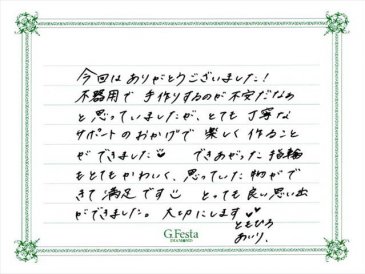 今回はありがとうございました!
不器用で手作りするのが不安だなぁ
と思っていましたが、とても丁寧な
サポートのおかげで楽しく作ること
ができました♡ できあがった指輪
もとてもかわいく、思っていた物がで
きて満足です☺ とっても良い思い出
ができました。大切にします♡♡
ともひろ
あいり.
G.Festa
DIAMOND